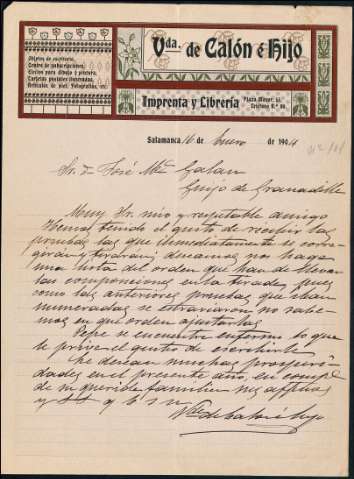 Vda. de Calón é Hijo
Objetos de escritorio.
Centro de suscripciones.
Efectos para dibujo y pintura.
Tarjetas postales ilustradas.
Artículos de piel, Fotografías, etc.
Imprenta y Librería
Plaza Mayor,
Salamanca 16 de Enero de 1904
Sr. Dn José Mª Galan
Guijo de Granadilla
Muy Sr. mio y respetable amigo
Hemos tenido el gusto de recibir las
pruebas las que inmediatamente se corre-
giran y tiraran; deseamos nos haga
una lista del orden que han de llevar
las composiciones en la tirada, pues
como las anteriores pruebas que iban
numeradas se extraviaron no sabe-
mos en que orden ajustarlas
Pepe se encuentra enfermo lo que
le priva el gusto de escribirle
Le desean muchas prosperi-
dades en el presente año, en compª
de su querible familia sus
y SS q b s m
Vda de Calon é hijo